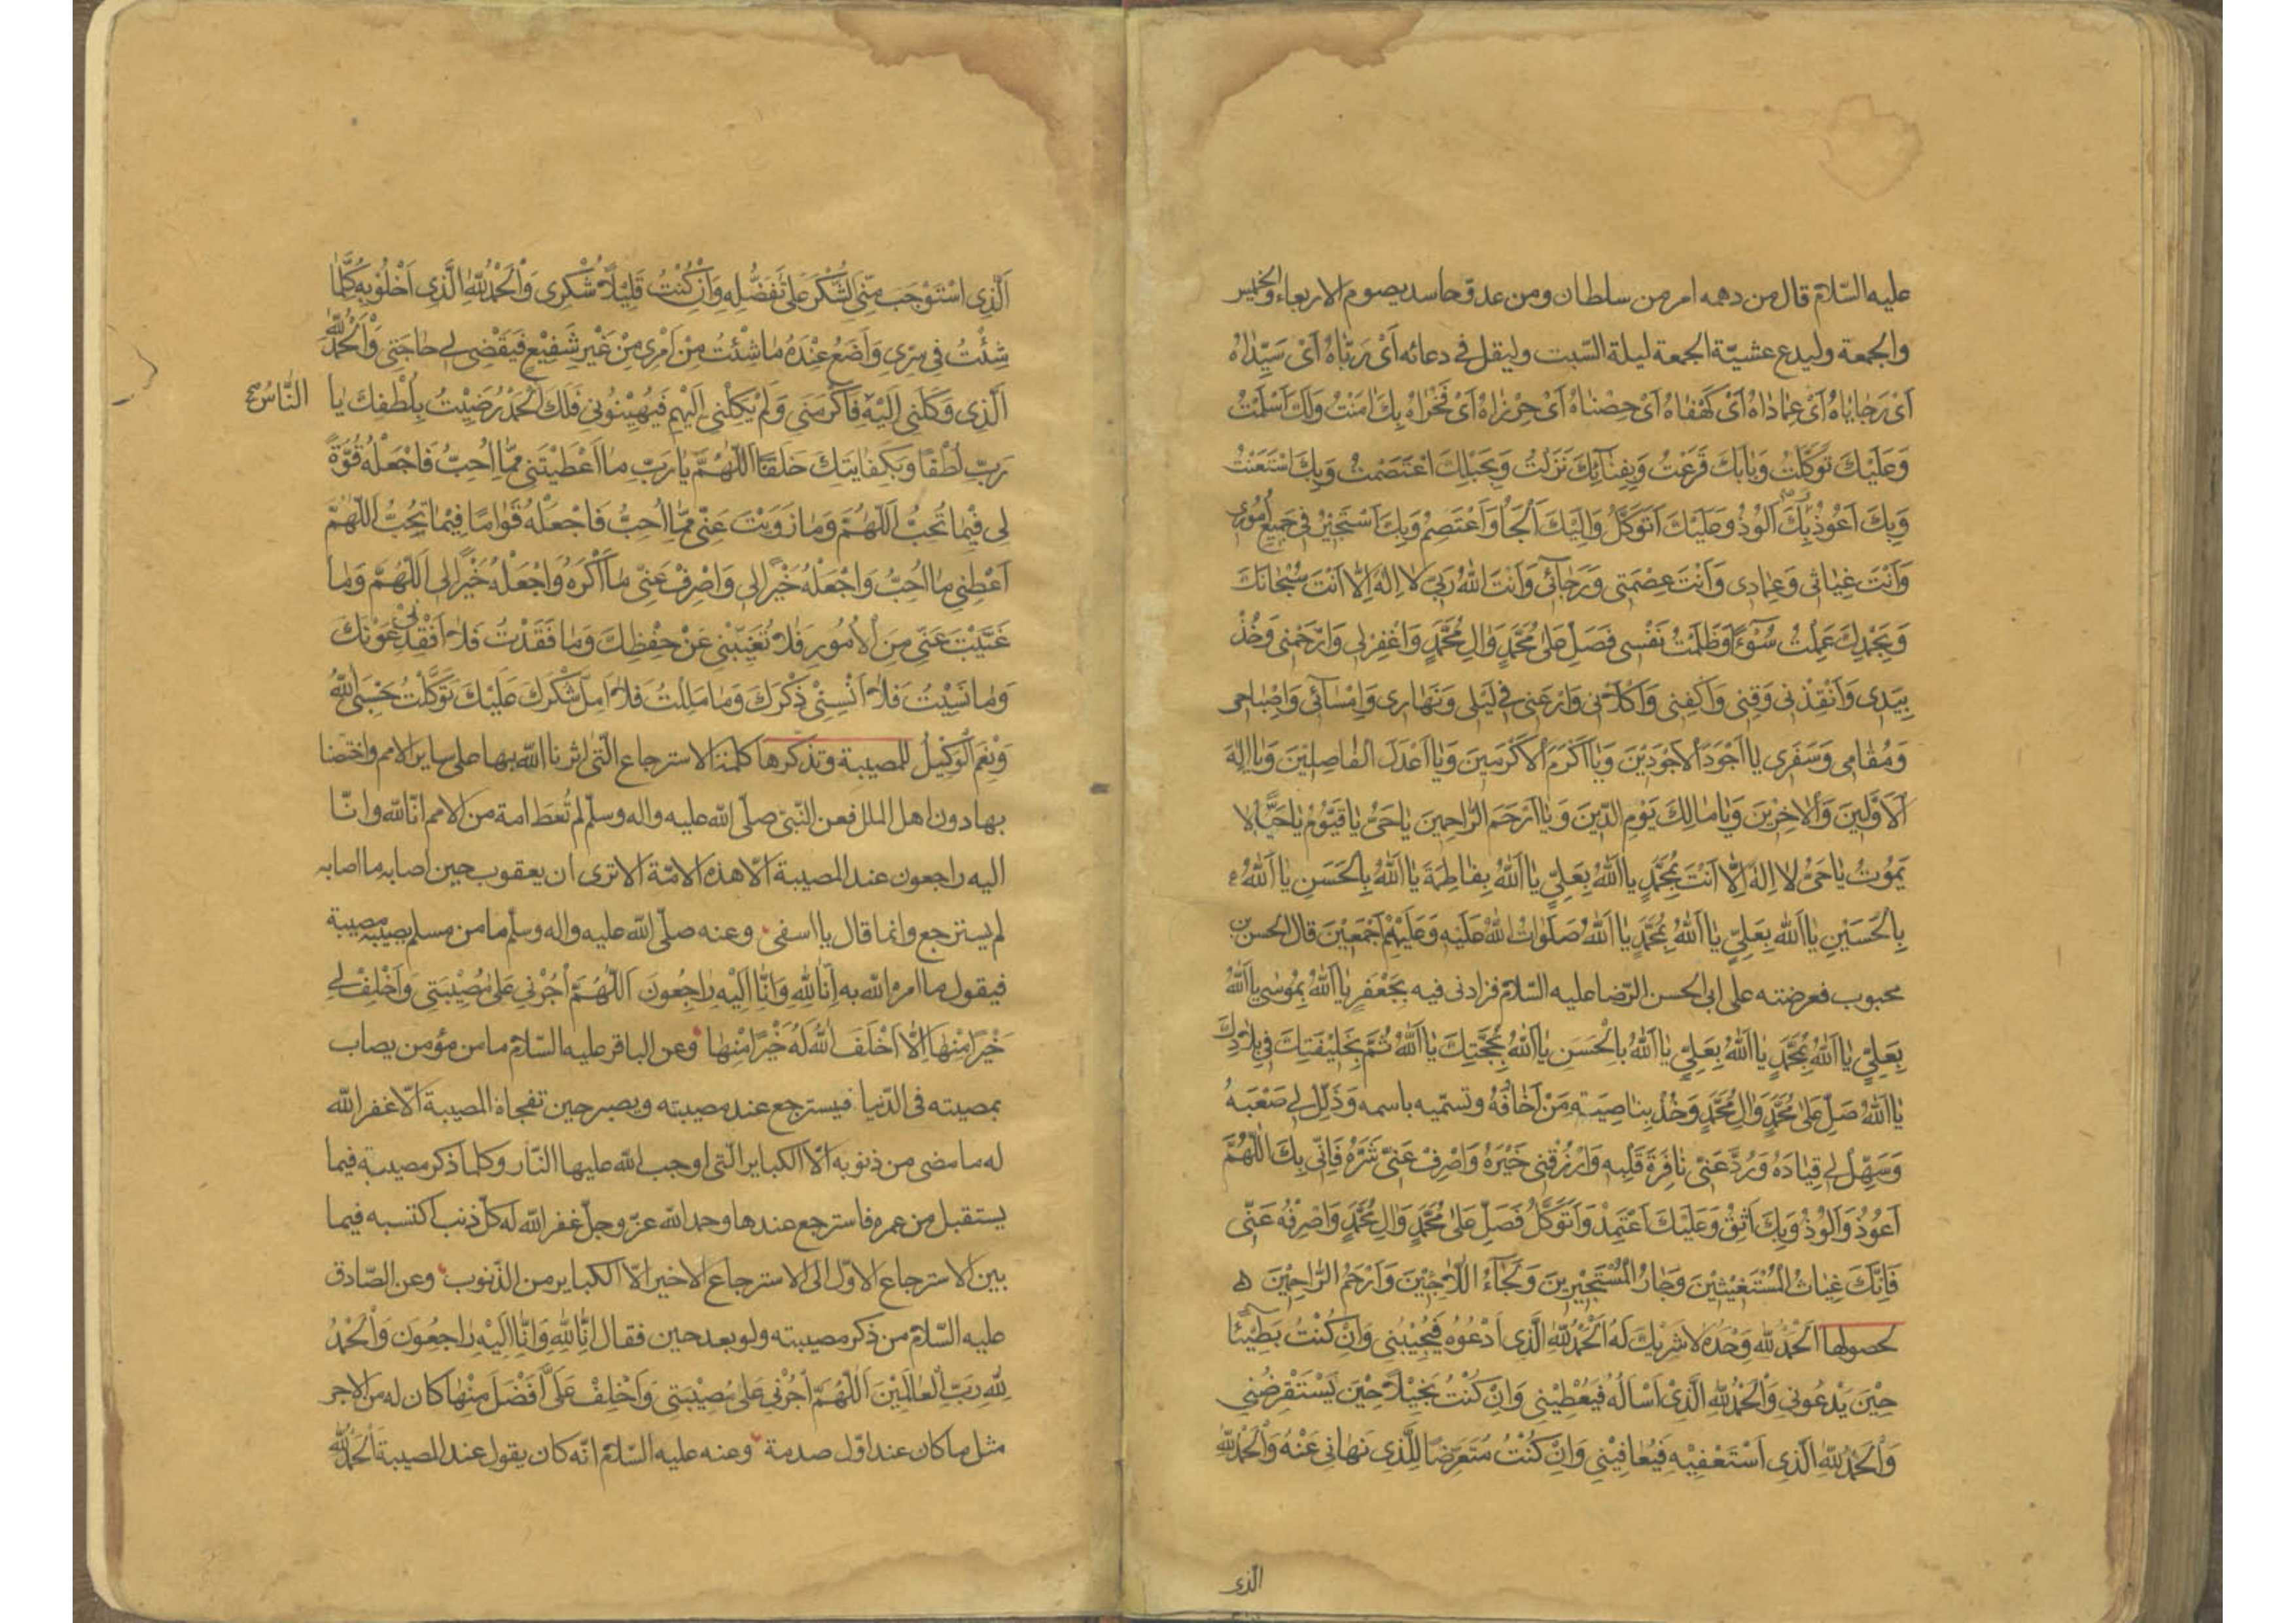 عليه السّلام قال من دهمه امر من سلطان ومن عدوّ حاسد يصوم الاربعاء والخميس
والجمعة وليدع عشيّة الجمعة ليلة السّبت وليقل فى دعائه اَىْ رَبّاهُ اَىْ سَيِّدٰاهُ
اَىْ رَجٰايٰاهُ اَىْ عِمٰادٰاهُ اَىْ كَهْفٰاهُ اَىْ حِصْنٰاهُ اَىْ حِرْزٰاهُ اَىْ فَخْرٰاهُ بِكَ اٰمَنْتُ وَلَكَ اَسْلَمْتُ
وَعَلَيْكَ تَوَكَّلْتُ وَبٰابَكَ قَرَعْتُ وَبِفِنٰآئِكَ نَزَلْتُ وَبِحَبْلِكَ اعْتَصَمْتُ وَبِكَ اسْتَعَنْتُ
وَبِكَ اَعُوذُ بِكَ اَلُوذُ وَعَلَيْكَ اَتَوَكَّلُ وَاِلَيْكَ اَلْجَأُ وَاَعْتَصِمُ وَبِكَ اَسْتَجِيْرُ فِى جَمِيْعِ اُمُورِى
وَاَنْتَ غِيٰاثِى وَعِمٰادِى وَاَنْتَ عِصْمَتِى وَرَجٰآئِى وَاَنْتَ اللهُ رَبِّى لاٰ اِلٰهَ اِلّاٰ اَنْتَ سُبْحٰانَكَ
وَبِحَمْدِكَ عَمِلْتُ سُوْءًا وَظَلَمْتُ نَفْسِى فَصَلِّ عَلىٰ مُحَمَّدٍ وَاٰلِ مُحَمَّدٍ وَاغْفِرْلِى وَارْحَمْنِى وَخُذْ
بِيَدِى وَاَنْقِذْنِى وَقِنِى وَاكْفِنِى وَاكْلَأْنِى وَارْعَنِى فِى لَيْلِى وَنَهٰارِى وَاِمْسٰآئِى وَاِصْبٰاحِى
وَمُقٰامِى وَسَفَرِى يٰا اَجْوَدَ الاَجْوَدِيْنَ وَيٰا اَكْرَمَ الاَكْرَمِيْنَ وَيٰا اَعْدَلَ الفٰاصِلِيْنَ وَيٰا اِلٰهَ
الاَوَّلِيْنَ وَالاٰخِرِيْنَ وَيٰا مٰالِكَ يَوْمِ الدِّيْنِ وَيٰا اَرْحَمَ الرّٰاحِمِيْنَ يٰا حَىُّ يٰا قَيُّومُ يٰا حَيًّا لاٰ
يَمُوْتُ يٰا حَىُّ لاٰ اِلٰهَ اِلّاٰ اَنْتَ بِمُحَمَّدٍ يٰا اَللهُ بِعَلِيٍّ يٰا اَللهُ بِفٰاطِمَةَ يٰا اَللهُ بِالْحَسَنِ يٰا اَللهُ
بِالْحُسَيْنِ يٰا اَللهُ بِعَلِيٍّ يٰا اَللهُ بِمُحَمَّدٍ يٰا اَللهُ صَلَوٰاتُ اللهِ عَلَيْهِ وَعَلَيْهِمْ اَجْمَعِيْنَ قال الحسن بن
محبوب فعرضته على ابى الحسن الرّضا عليه السّلام فزادنى فيه بِجَعْفَرٍ يٰا اَللهُ بِمُوْسىٰ يٰا اَللهُ
بِعَلِيٍّ يٰا اَللهُ بِمُحَمَّدٍ يٰا اَللهُ بِعَلِيٍّ يٰا اَللهُ بِالْحَسَنِ يٰا اَللهُ بِحُجَّتِكَ يٰا اَللهُ ثُمَّ بِخَلِيْفَتِكَ فِى بِلاٰدِكَ
يٰا اَللهُ صَلِّ عَلىٰ مُحَمَّدٍ وَاٰلِ مُحَمَّدٍ وَخُذْ بِنٰاصِيَتِهِ مَنْ اَخٰافُهُ وتسمّيه باسمه وَذَلِّلْ لِى صَعْبَهُ
وَسَهِّلْ لِى قِيٰادَهُ وَرُدَّ عَنِّى نٰافِرَةَ قَلْبِهِ وَارْزُقْنِى خَيْرَهُ وَاصْرِفْ عَنِّى شَرَّهُ فَاِنِّى بِكَ اللّٰهُمَّ
اَعُوْذُ وَاَلُوْذُ وَبِكَ اَثِقُ وَعَلَيْكَ اَعْتَمِدُ وَاَتَوَكَّلُ فَصَلِّ عَلىٰ مُحَمَّدٍ وَاٰلِ مُحَمَّدٍ وَاصْرِفْهُ عَنِّى
فَاِنَّكَ غِيٰاثُ الْمُسْتَغِيْثِيْنَ وَجٰارُ الْمُسْتَجِيْرِيْنَ وَلَجٰآءُ اللّاٰجِئِيْنَ وَاَرْحَمُ الرّٰاحِمِيْنَ
لحصولها اَلْحَمْدُ لِلّهِ وَحْدَهُ لاٰ شَرِيْكَ لَهُ اَلْحَمْدُ لِلّٰهِ الَّذِى اَدْعُوْهُ فَيُجِيْبُنِى وَاِنْ كُنْتُ بَطِيْئًا
حِيْنَ يَدْعُونِى وَالْحَمْدُ لِلّٰهِ الَّذِىْ اَسْاَلُهُ فَيُعْطِيْنِى وَاِنْ كُنْتُ بَخِيْلاً حِيْنَ يَسْتَقْرِضُنِى
وَالْحَمْدُ لِلّٰهِ الَّذِى اَسْتَعْفِيْهِ فَيُعٰافِيْنِى وَاِنْ كُنْتُ مُتَعَرِّضًا لِلَّذِى نَهٰانِى عَنْهُ وَالْحَمْدُ لِلّٰهِ
الّذى
اَلَّذِى اسْتَوْجَبَ مِنِّى الشُّكْرَ عَلىٰ تَفَضُّلِهِ وَاِنْ كُنْتُ قَلِيْلاً شُكْرِى وَالْحَمْدُ لِلّٰهِ الَّذِى اَخْلُوْ بِهِ كُلَّمٰا
شِئْتُ فِى سِرِّى وَاَضَعُ عِنْدَهُ مٰا شِئْتُ مِنْ اَمْرِى مِنْ غَيْرِ شَفِيْعٍ فَيَقْضِى لِى حٰاجَتِى وَالْحَمْدُ لِلّٰهِ
الَّذِى وَكَلَنِى اِلَيْهِ فَاَكْرَمَنِى وَلَمْ يَكِلْنِى اِلَيْهِم فَيُهِيْنُونِى فَلَكَ الْحَمْدُ رَضِيْتُ بِلُطْفِكَ يٰا
النّٰاسِ
رَبِّ لُطْفًا وَبِكَفٰايَتِكَ خَلَفًا اَللّٰهُمَّ يٰا رَبِّ مٰا اَعْطَيْتَنِى مِمّٰا اُحِبُّ فَاجْعَلْهُ قُوَّةً
لِى فِيْمٰا تُحِبُّ اَللّٰهُمَّ وَمٰا زَوَيْتَ عَنِّى مِمّٰا اُحِبُّ فَاجْعَلْهُ قَوٰامًا فِيْمٰا تُحِبُّ اَللّٰهُمَّ
اَعْطِنِى مٰا اُحِبُّ وَاجْعَلْهُ خَيْرًا لِى وَاصْرِفْ عَنِّى مٰا اَكْرَهُ وَاجْعَلْهُ خَيْرًا لِى اَللّٰهُمَّ وَمٰا
غَيَّبْتَ عَنِّى مِنَ الْاُمُورِ فَلاٰ تُغَيِّبْنِى عَنْ حِفْظِكَ وَمٰا فَقَدْتُ فَلاٰ اَفْقِدْنِى عَوْنَكَ
وَمٰا نَسِيْتُ فَلاٰ اَنْسِنِى ذِكْرَكَ وَمٰا مَلِلْتُ فَلاٰ اَمِلَّ شُكْرَكَ عَلَيْكَ تَوَكَّلْتُ حَسْبِىَ اللهُ
وَنِعْمَ الْوَكِيْلُ للمصيبة وتذكرها كلمتا الاسترجاع الّتى اثرنا الله بها على ساير الامم واختصنا
بها دون اهل الملل فعن النّبىّ صلّى الله عليه واله وسلّم لم تُعطَ امة من الامم انّا لله وانّا
اليه راجعون عند المصيبة الّا هذه الامّة الا ترى ان يعقوب حين اصابه ما اصابه
لم يسترجع وانما قال يا اسفى وعنه صلّى الله عليه واله وسلّم ما من مسلم يصيبه مصيبة
فيقول ما امره الله به اِنّٰا لِلّٰهِ وَاِنّٰا اِلَيْهِ رٰاجِعُونَ اَللّٰهُمَّ أْجُرْنِى عَلىٰ مُصِيْبَتِى وَاَخْلِفْ لِى
خَيْرًا مِنْهٰا اِلّاٰ اَخْلَفَ اللهُ لَهُ خَيْرًا مِنْهٰا وعن الباقر عليه السّلام ما من مؤمن يصاب
بمصيبته فى الدّنيا فيسترجع عند مصيبته ويصبر حين تفجاه المصيبة الّا غفر الله
له ما مضى من ذنوبه الّا الكباير الّتى اوجب الله عليها النّار وكلما ذكر مصيبة فيما
يستقبل من عمره فاسترجع عندها وحمد الله عزّ وجلّ غفر الله له كلّ ذنب اكتسبه فيما
بين الاسترجاع الاوّل الى الاسترجاع الاخير الّا الكباير من الذّنوب وعن الصّادق
عليه السّلام من ذكر مصيبته ولو بعد حين فقال اِنّٰا لِلّٰهِ وَاِنّٰا اِلَيْهِ رٰاجِعُونَ وَالْحَمْدُ
لِلّٰهِ رَبِّ الْعٰالَمِيْنَ اَللّٰهُمَّ اَجُرْنِى عَلىٰ مُصِيْبَتِى وَاَخْلِفْ عَلَىَّ اَفْضَلَ مِنْهٰا كان له من الاجر
مثل ما كان عند اوّل صدمة وعنه عليه السّلام انّه كان يقول عند المصيبة اَلْحَمْدُ لِلّٰهِ